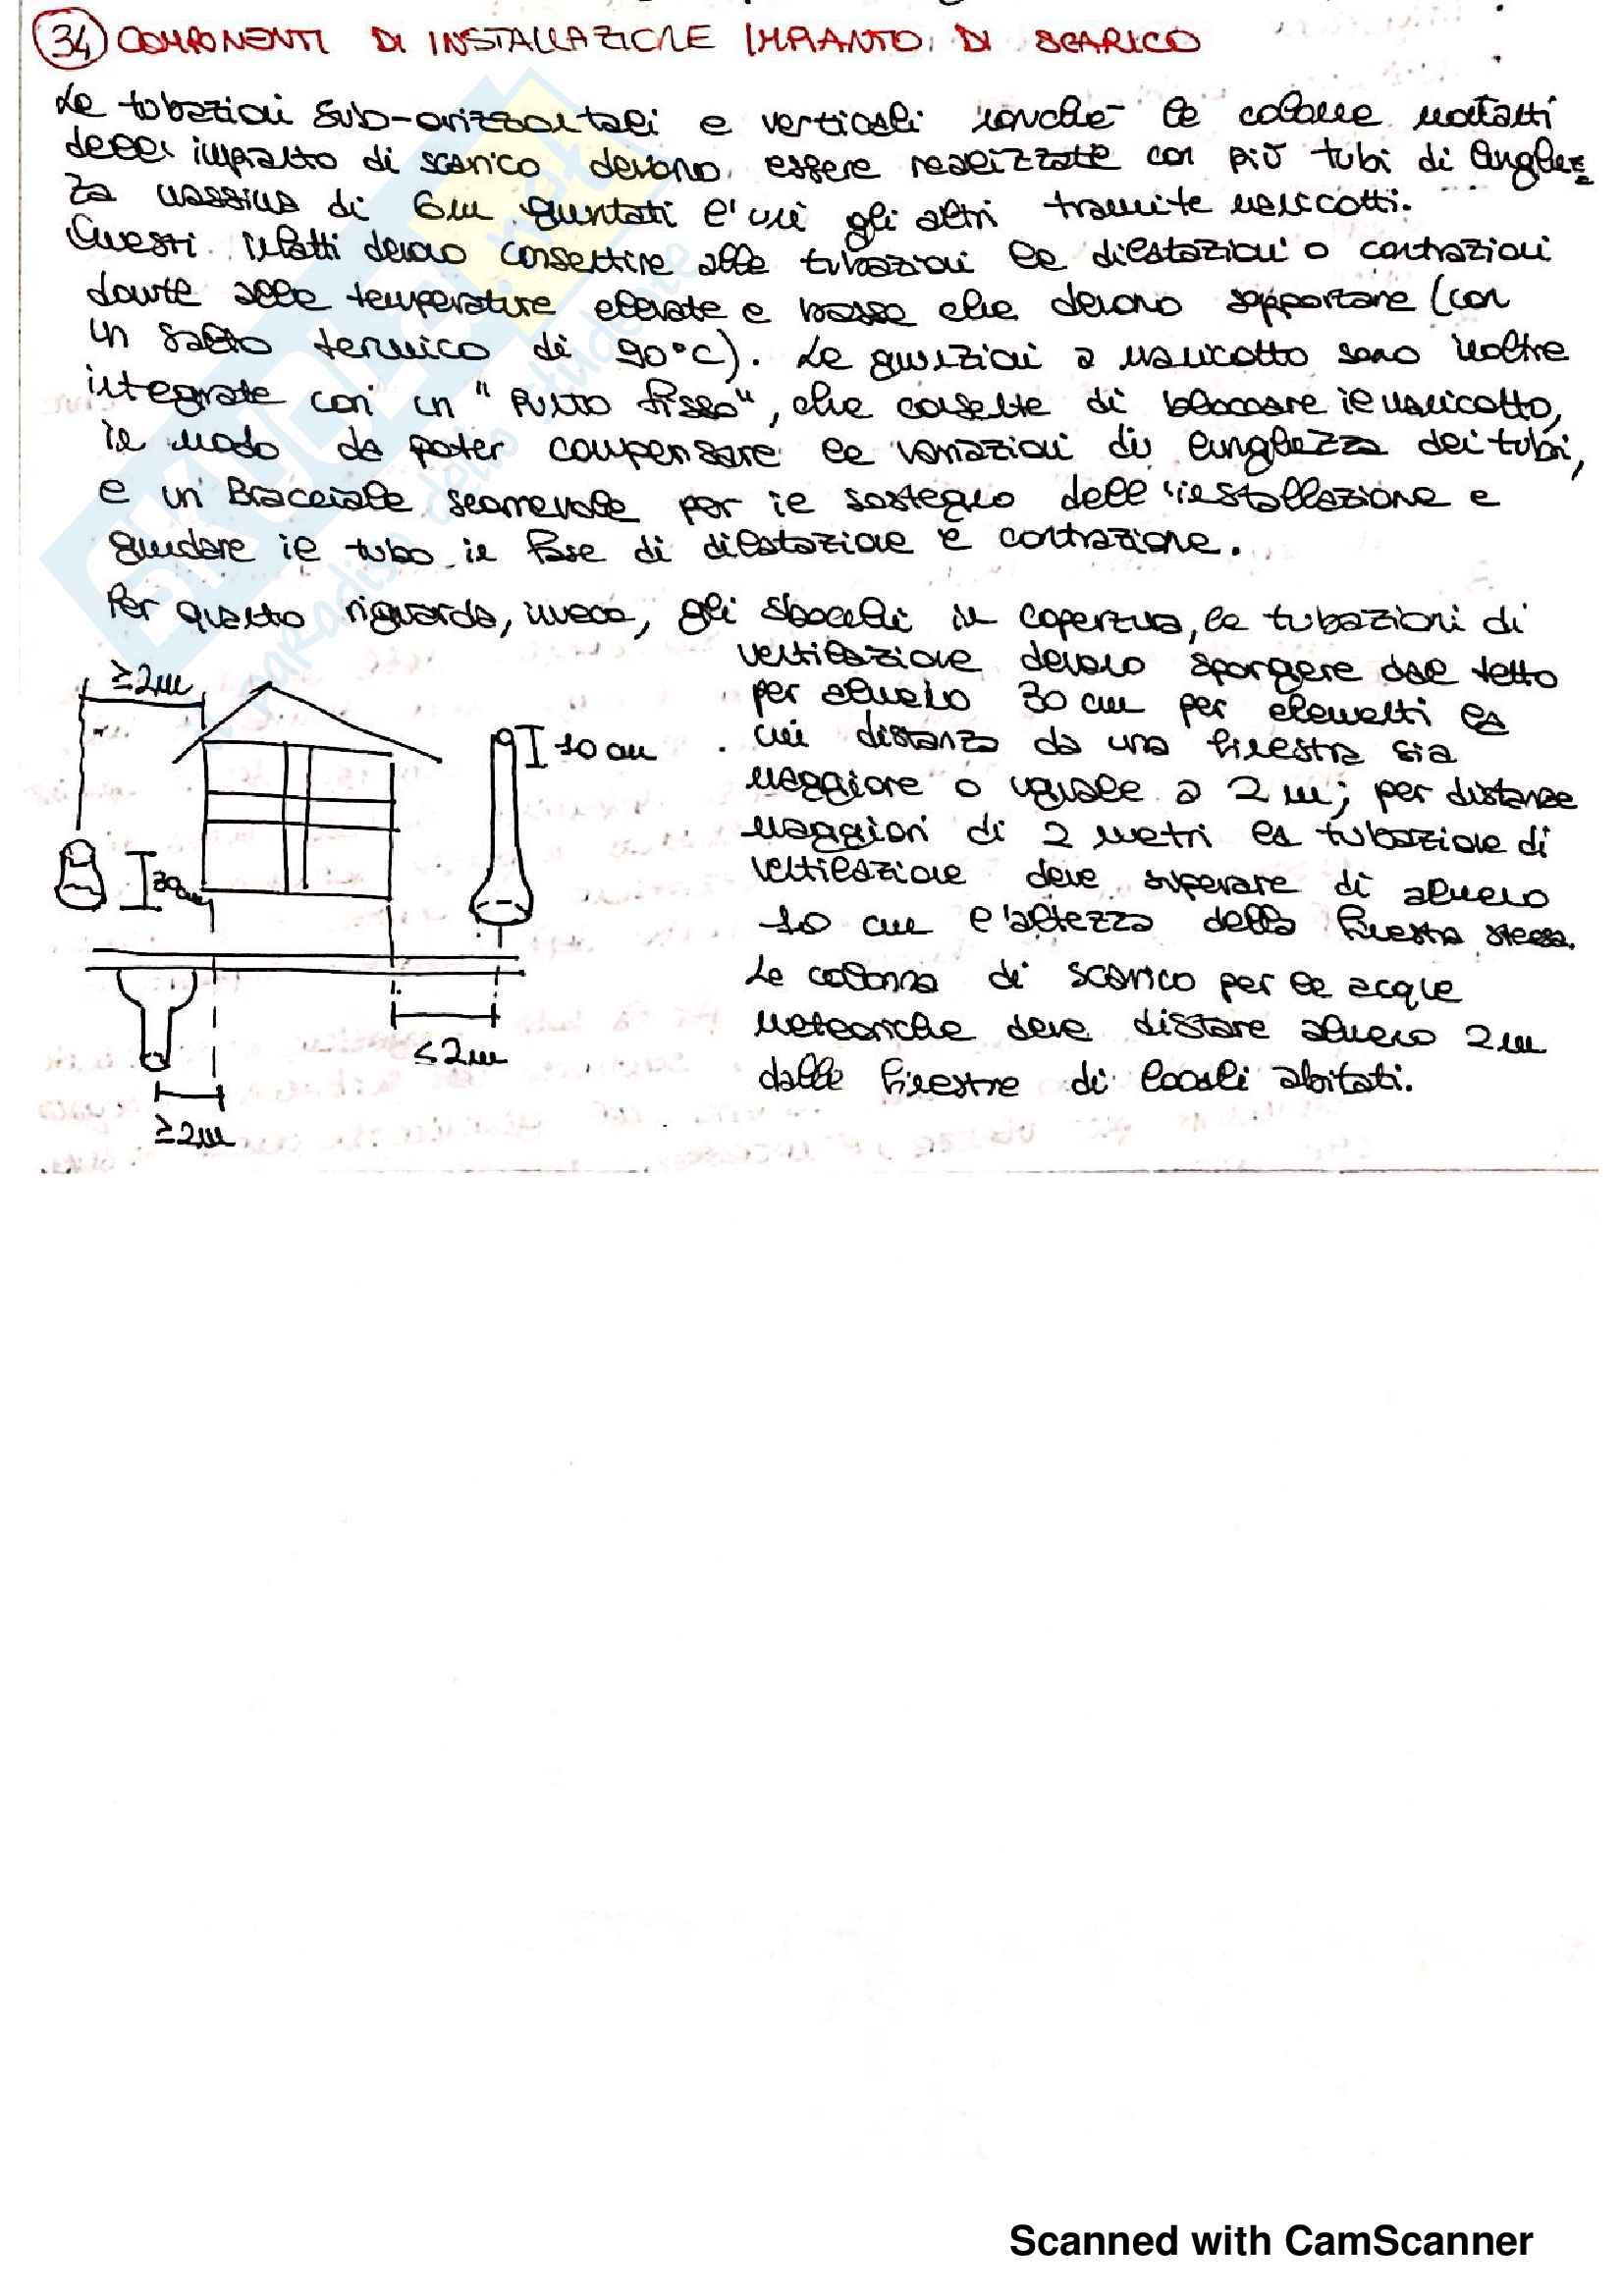 34 COMPONENTI DI INSTALLAZIONE IMPIANTO DI SCARICO
Le tubazioni sub-orizzontali e verticali nonché le colonne montanti
dell'impianto di scarico devono essere realizzate con più tubi di lunghez=
za massima di 6m giuntati l'un gli altri tramite manicotti.
Questi infatti devono consentire alle tubazioni le dilatazioni o contrazioni
dovute alle temperature elevate e basse che devono sopportare (con
un salto termico di 90°C). Le giunzioni a manicotto sono inoltre
integrate con un "Punto fisso", che consente di bloccare il manicotto,
in modo da poter compensare le variazioni di lunghezza dei tubi,
e un Bracciale scorrevole per il sostegno dell'installazione e
guidare il tubo in fase di dilatazione e contrazione.
Per quanto riguarda, invece, gli sbocchi in copertura, le tubazioni di
ventilazione devono sporgere dal tetto
per almeno 30 cm per elementi la
cui distanza da una finestra sia
maggiore o uguale a 2 m; per distanze
maggiori di 2 metri la tubazione di
ventilazione deve superare di almeno
10 cm l'altezza della finestra stessa.
La colonna di scarico per le acque
meteoriche deve distare almeno 2m
dalle finestre di locali abitati.
≥2m
10 cm
30cm
≤2m
≥2m
SKUOLA.net
paradiso dello studente
Scanned with CamScanner